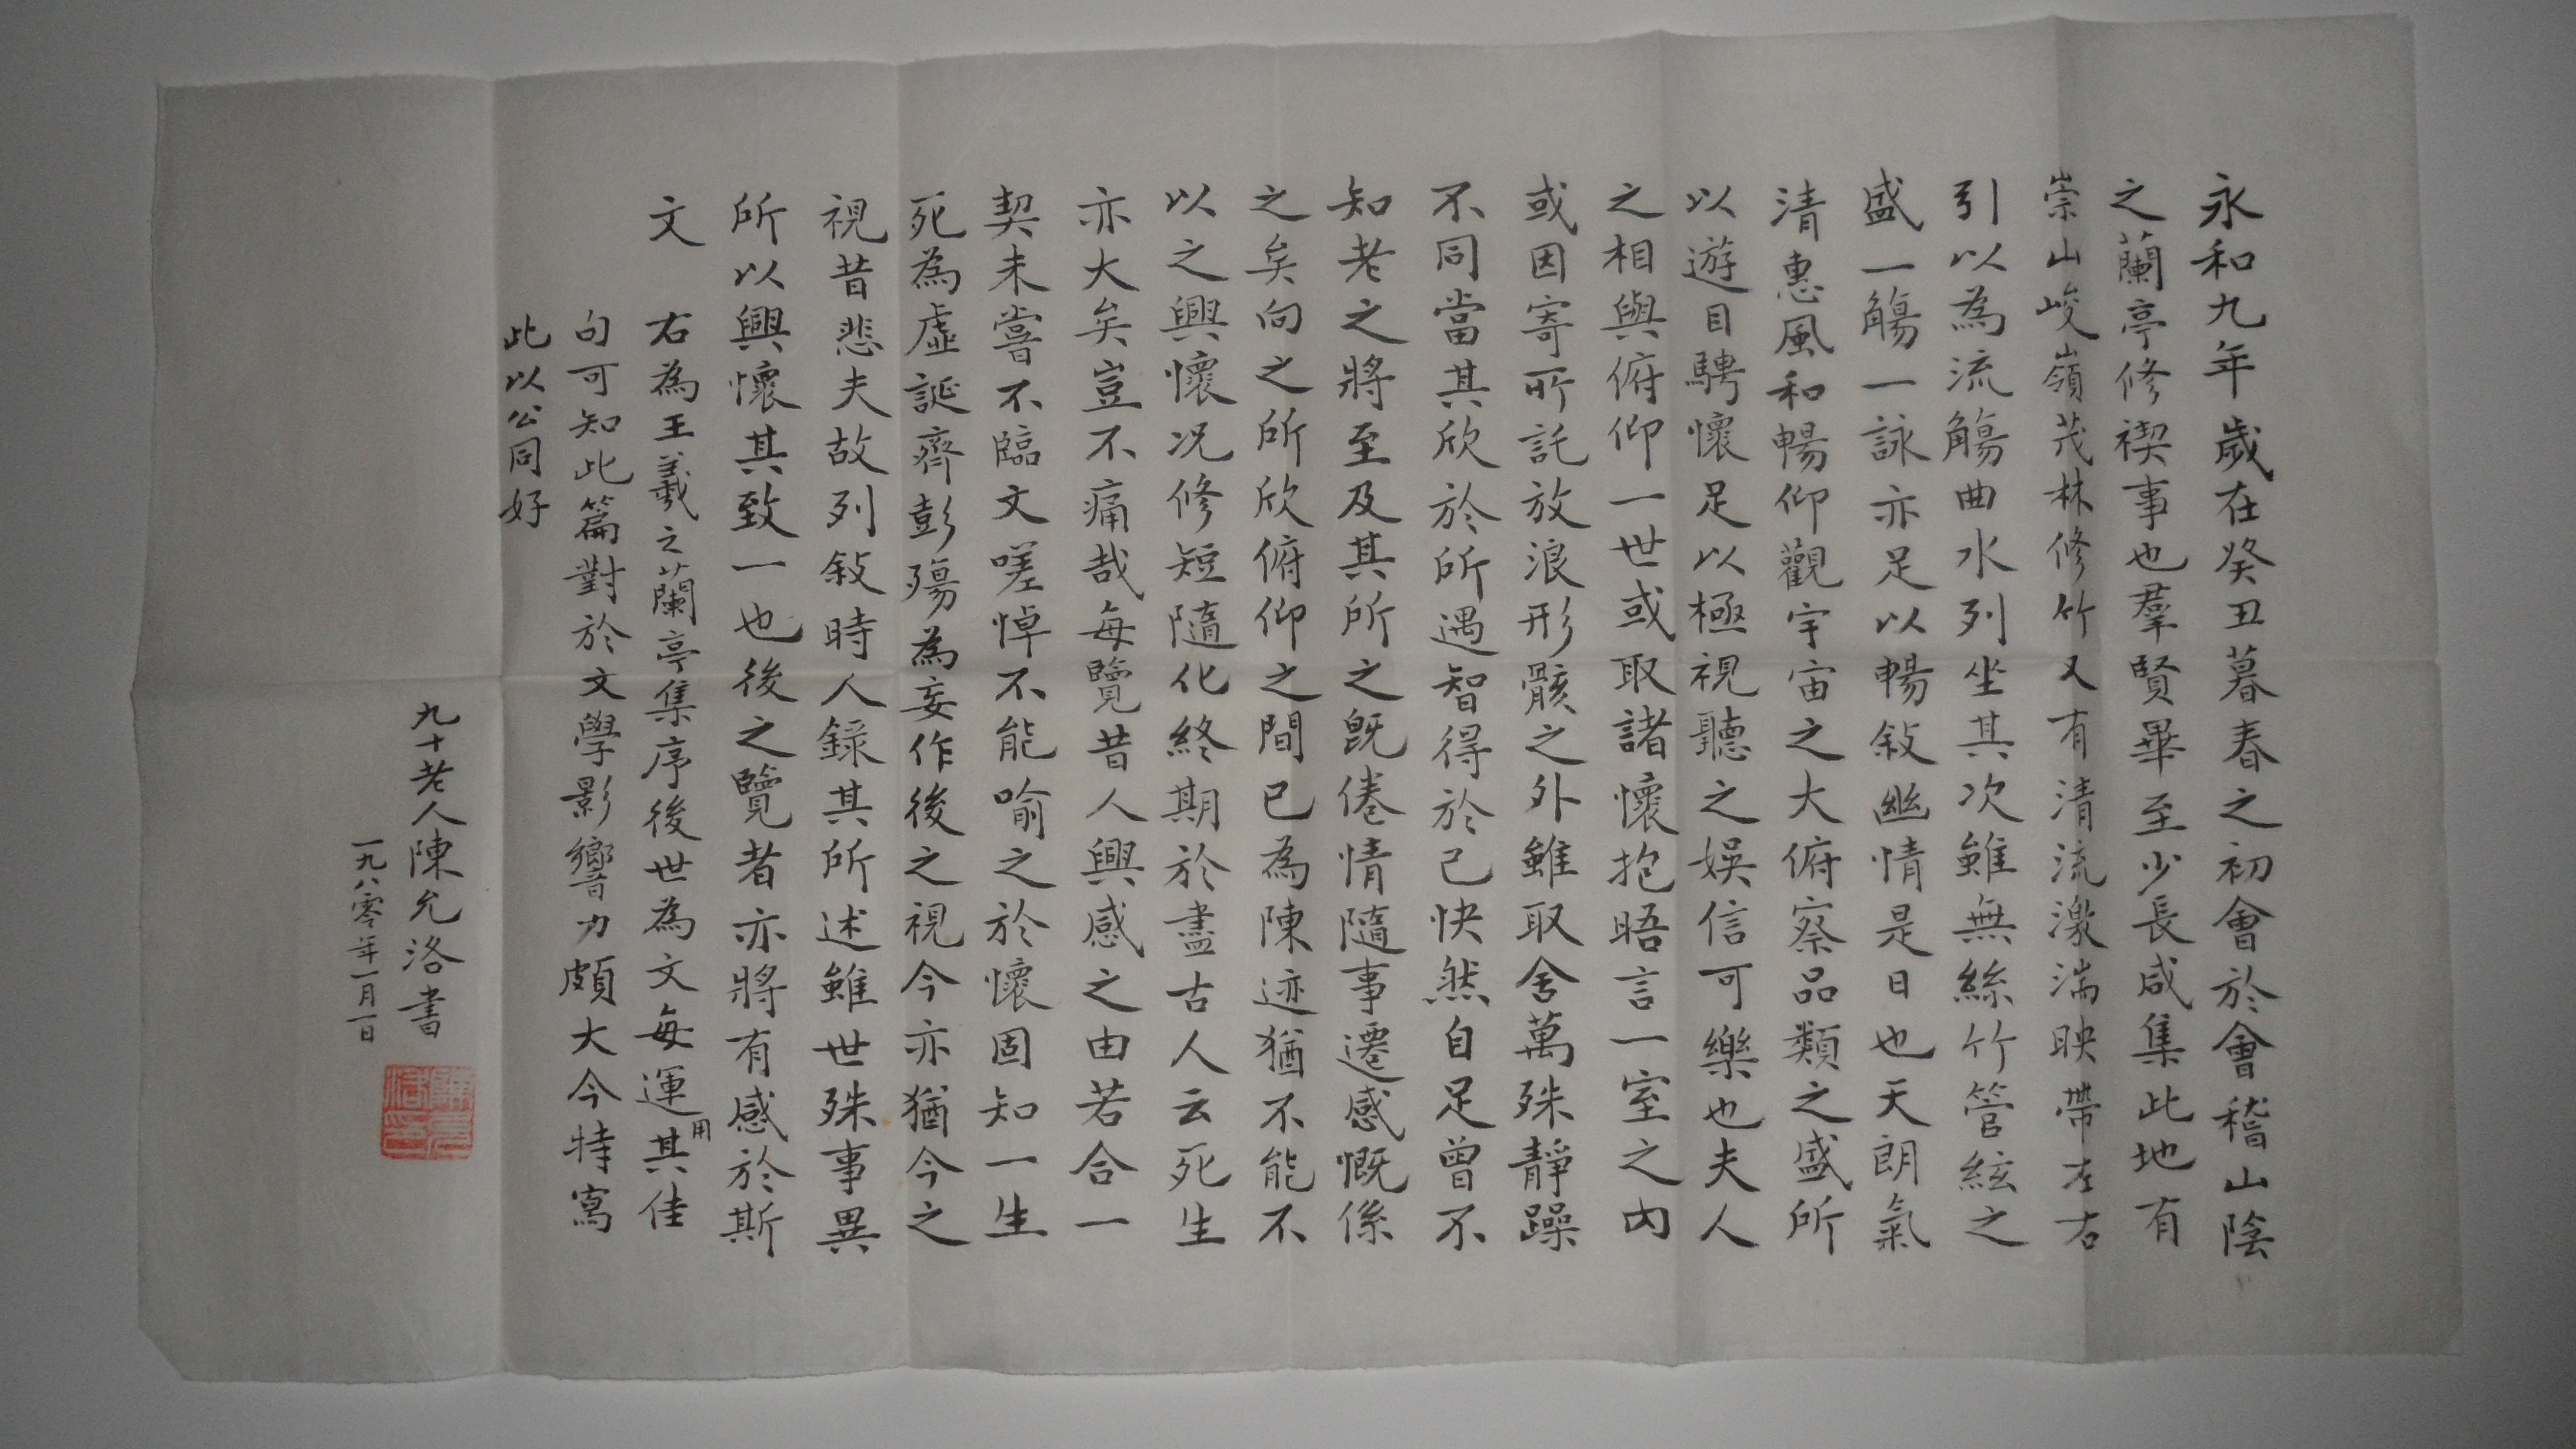 永和九年歲在癸丑暮春之初會於會稽山陰
之蘭亭修禊事也羣賢畢至少長咸集此地有
崇山峻嶺茂林修竹又有清流激湍映帶左右
引以為流觴曲水列坐其次雖無絲竹管絃之
盛一觴一詠亦足以暢敍幽情是日也天朗氣
清惠風和暢仰觀宇宙之大俯察品類之盛所
以遊目騁懷足以極視聽之娛信可樂也夫人
之相與俯仰一世或取諸懷抱晤言一室之內
或因寄所託放浪形骸之外雖取舍萬殊靜躁
不同當其欣於所遇智得於己快然自足曾不
知老之將至及其所之既倦情隨事遷感慨係
之矣向之所欣俯仰之間已為陳迹猶不能不
以之興懷况修短隨化終期於盡古人云死生
亦大矣豈不痛哉每覽昔人興感之由若合一
契未嘗不臨文嗟悼不能喻之於懷固知一生
死為虛誕齊彭殤為妄作後之視今亦猶今之
視昔悲夫故列敍時人錄其所述雖世殊事異
所以興懷其致一也後之覽者亦將有感於斯
文
右為王羲之蘭亭集序後世為文每運用其佳
句可知此篇對於文學影響力頗大今特寫
此以公同好
九十老人陳允洛書
一九八零年一月一日